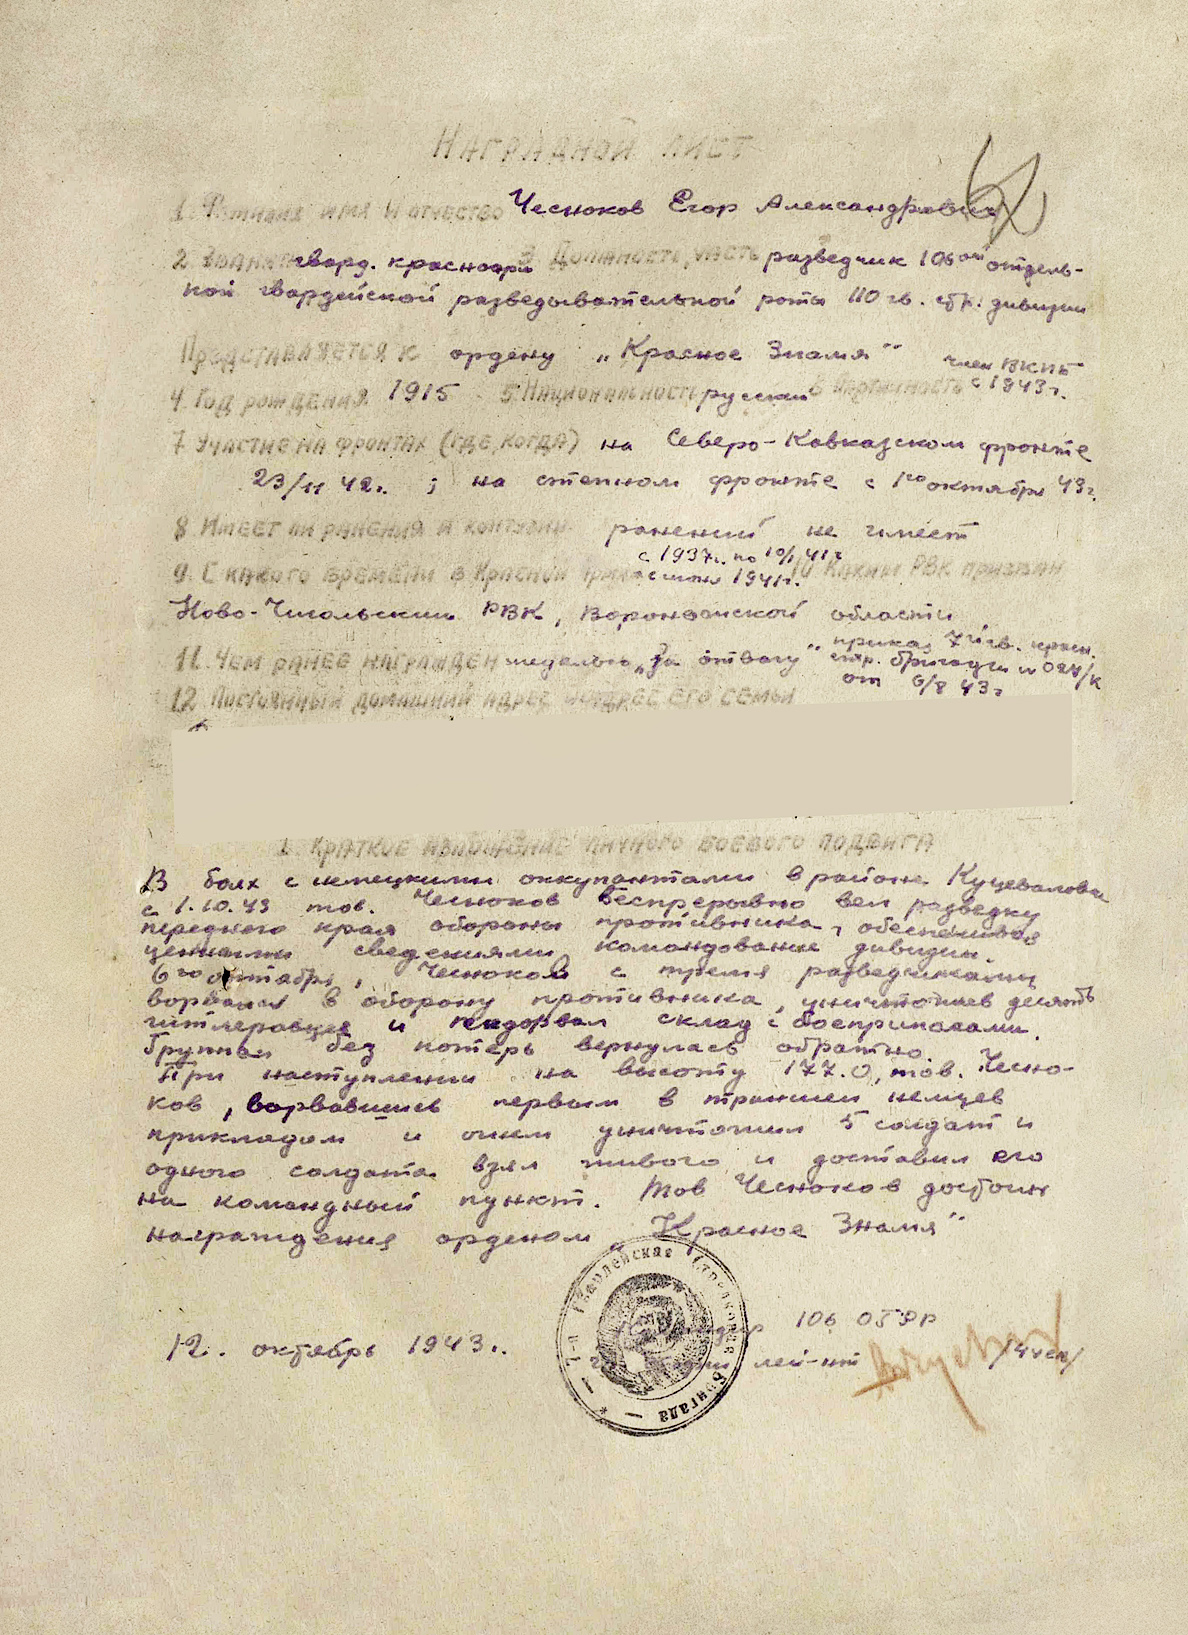 Наградной лист
1. Фамилия имя и отчество Чесноков Егор Александрович
2. Звание гвард. красноарм 3. Должность, часть разведчик 106ой отдель-
ной гвардейской разведывательной роты 110 гв. стр. дивизии
Представляется к ордену „Красное Знамя"
член ВКПб
4. Год рождения 1915 5. Национальность русский 6 Партийность с 1943 г.
7. Участие на фронтах (где, когда) на Северо-Кавказском фронте
23/11 42 г. ; на степном фронте с 1го октября 43 г.
8 Имеет ли ранения и контузии ранений не имеет
с 1937 г. по 10/ 41 г
9. С какого времени в Красной Армии с июня 1941 г. 10 Каким РВК призван
Ново-Чигольским РВК, Воронежской области
11. Чем ранее награжден медалью „За отвагу" приказ 7й гв. красн.
стр. бригады N 027/к
от 6/8 43 г
12 Постоянный домашний адрес и адрес его семьи
1. Краткое изложение личного боевого подвига
В боях с немецкими оккупантами в районе Куцеваловка
с 1.10.43 тов. Чесноков беспрерывно вел разведку
переднего края обороны противника, обеспечивая
ценными сведениями командование дивизии.
6го октября, Чесноков с тремя разведчиками
ворвался в оборону противника, уничтожив десять
гитлеровцев и подорвал склад с боеприпасами.
Группа без потерь вернулась обратно.
При наступлении на высоту 177.0, тов. Чесно-
ков, ворвавшись первым в траншеи немцев
прикладом и огнем уничтожил 5 солдат и
одного солдата взял живого и доставил его
на командный пункт. Тов Чесноков достоин
награждения орденом „Красное Знамя"
7-я Гвардейская Стрелковая Бригада
Командир 106 ОГРР
12. октябрь 1943 г. гвардии лей-нт